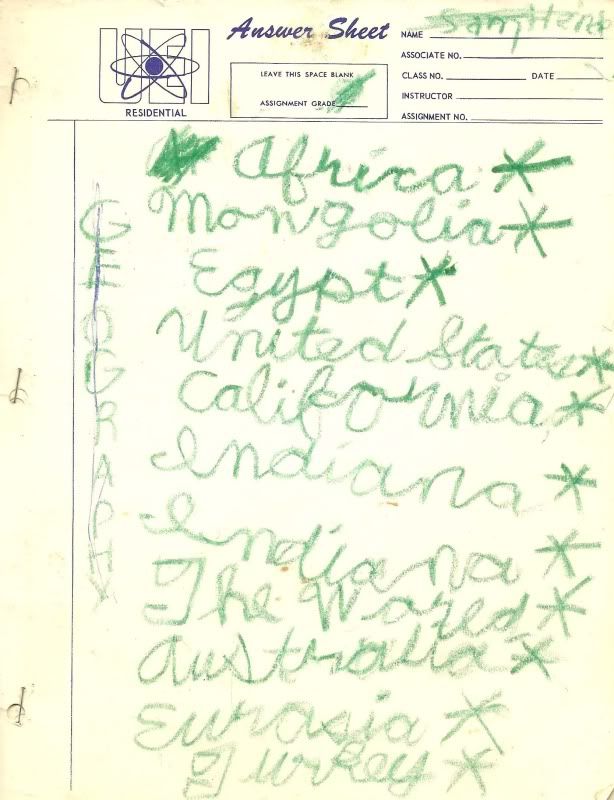 UEI
RESIDENTIAL
Answer Sheet
LEAVE THIS SPACE BLANK
ASSIGNMENT GRADE
NAME
ASSOCIATE NO.
CLASS NO. DATE
INSTRUCTOR
ASSIGNMENT NO.
GEOGRAPHY
Africa *
Mongolia *
Egypt *
United States *
California *
Indiana *
Indiana *
The Wazed *
Australia *
Eurasia *
Turkey *